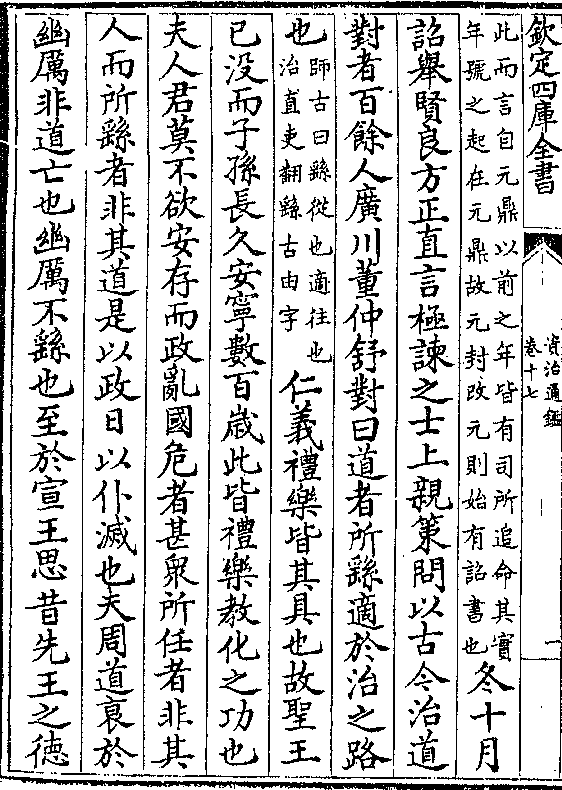 欽定四庫全書
資治通鑑
卷十七
一
此而言自元鼎以前之年皆有司所追命其實
年號之起在元鼎故元封改元則始有詔書也
冬十月
詔舉賢良方正直言極諫之士上親策問以古今治道
對者百餘人廣川董仲舒對曰道者所繇適於治之路
也
師古曰繇從也適往也
治直吏翻繇古由字
仁義禮樂皆其具也故聖王
已没而子孫長久安寧數百歲此皆禮樂教化之功也
夫人君莫不欲安存而政亂國危者甚衆所任者非其
人而所繇者非其道是以政日以仆滅也夫周道衰於
幽厲非道亡也幽厲不繇也至於宣王思昔先王之德